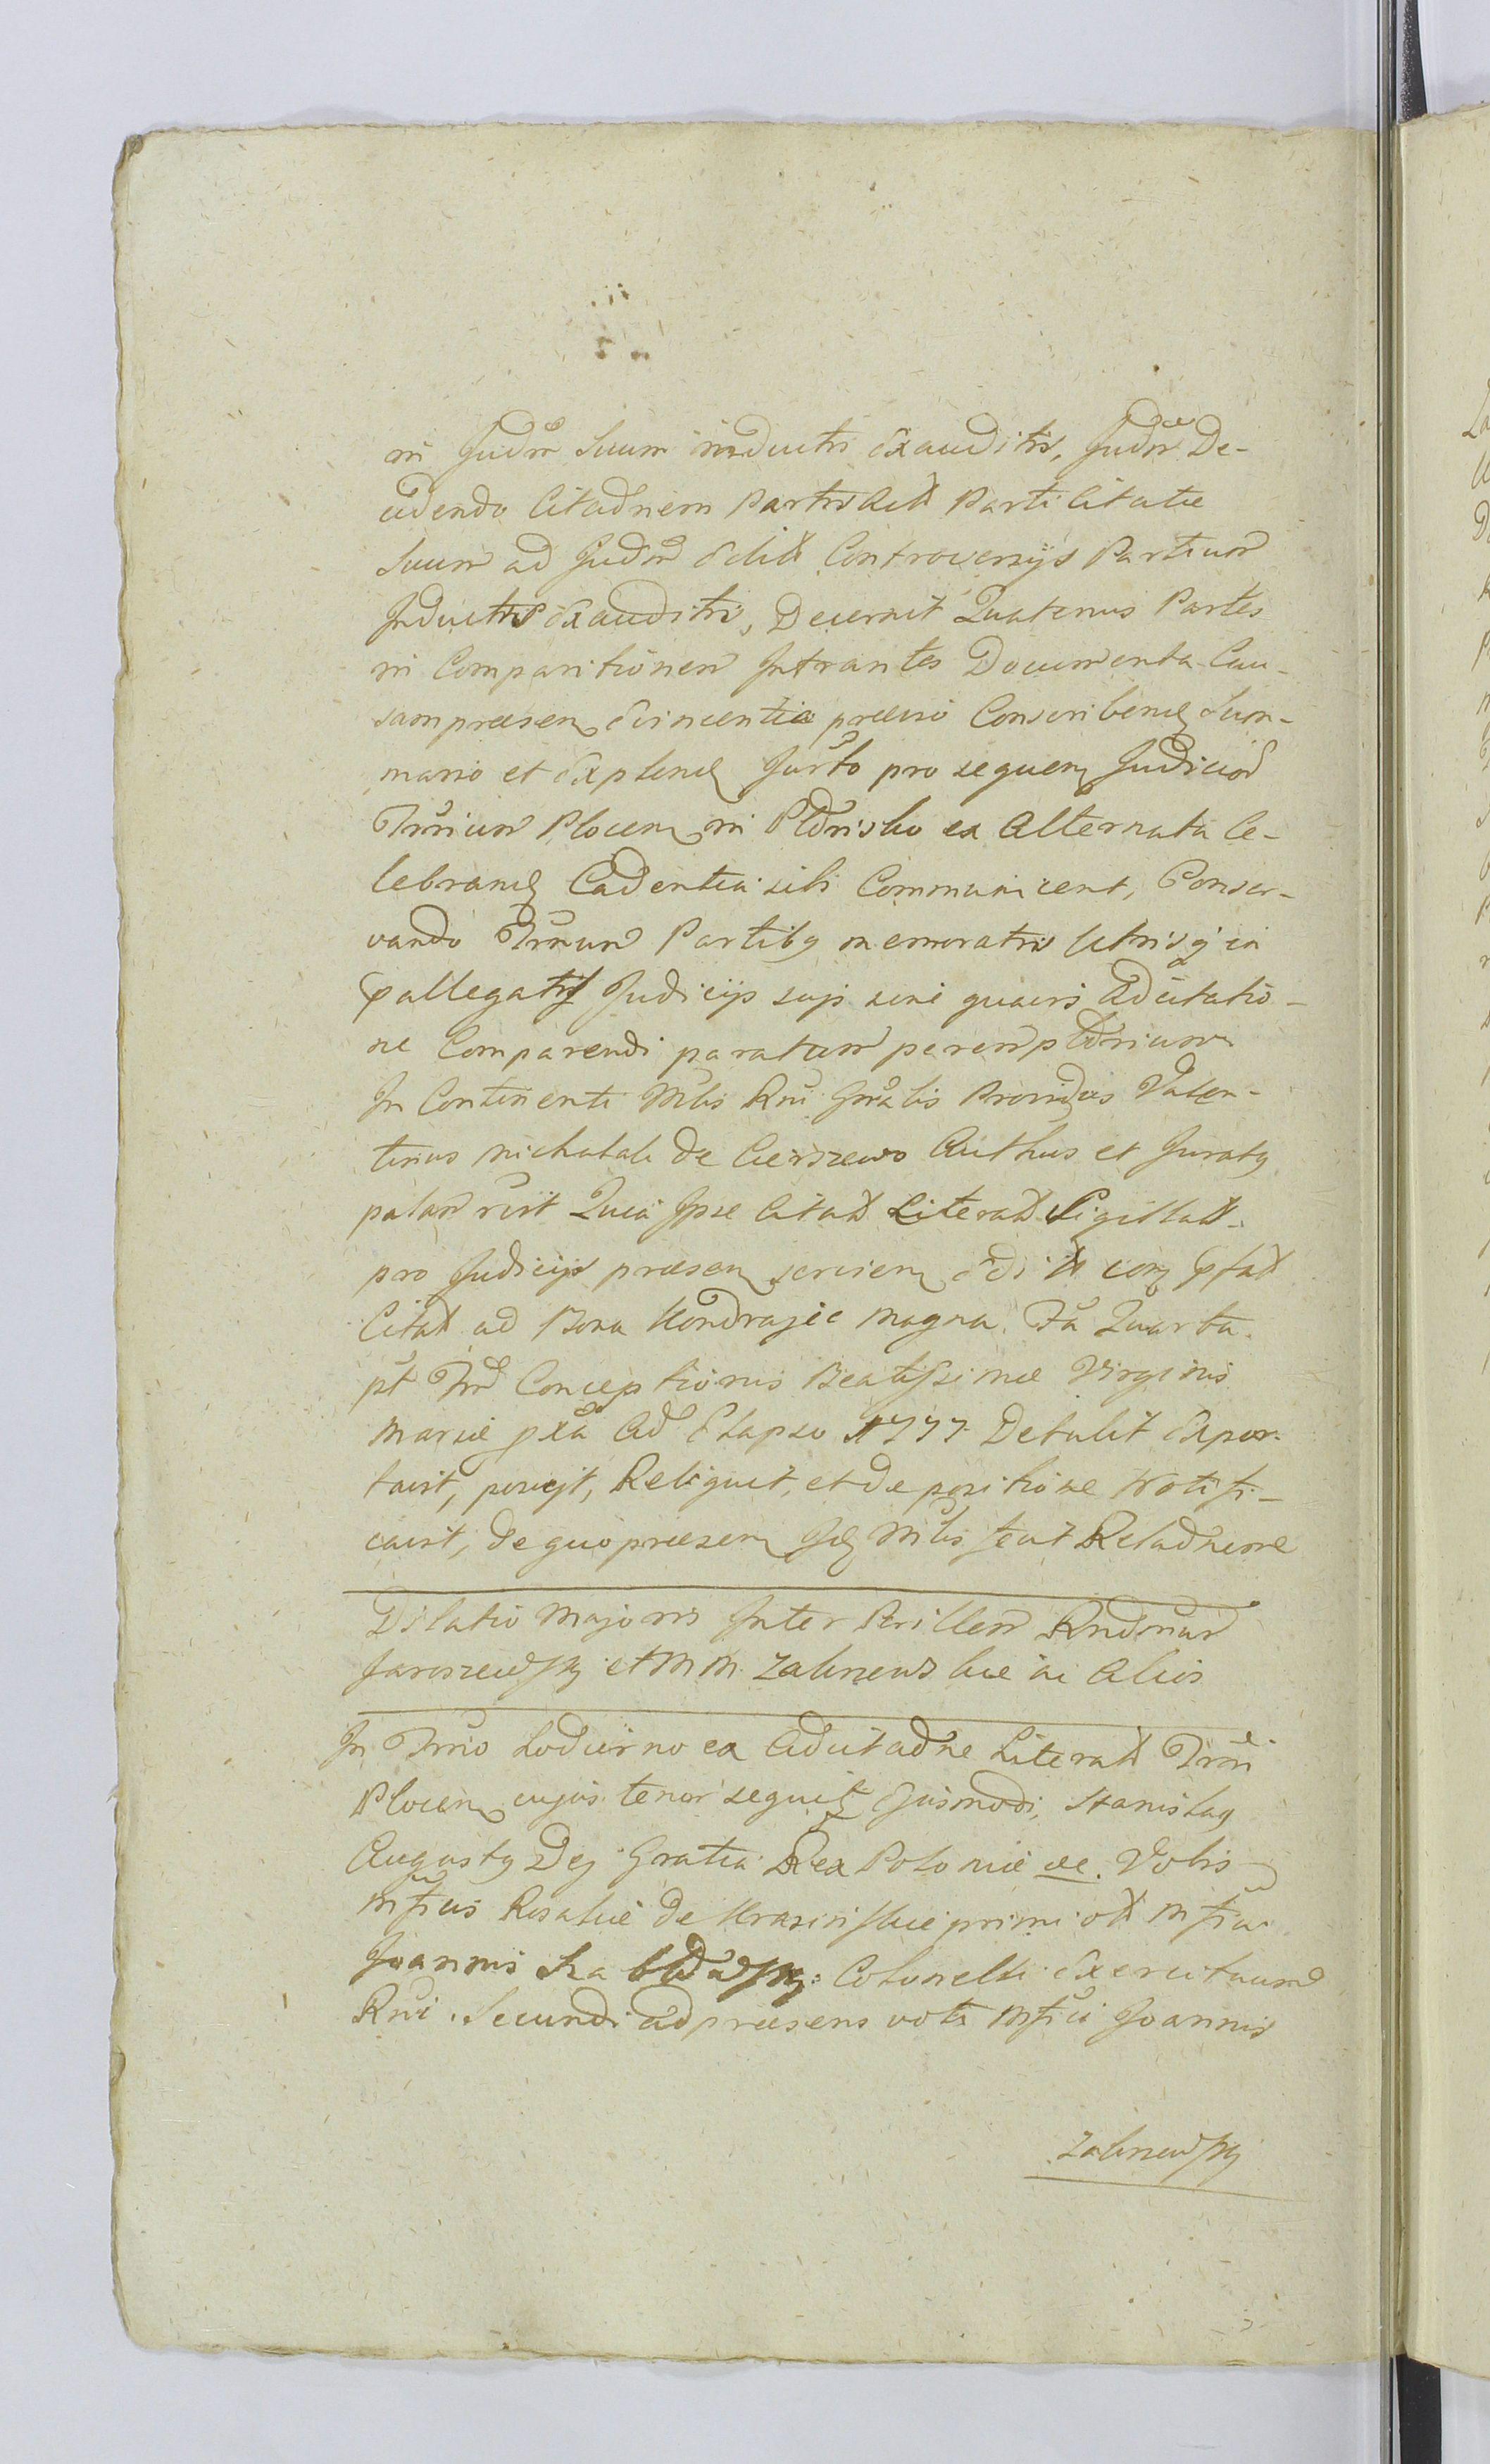 in Judm Suum inductis Exauditis, Judm De-
cidendo Citaõnem Partis Act Parti Citatæ
Suum ad Judm Edit Controversijs Partium
Inductis Exauditis, Decernit Quatenus Partes
in Comparitionem Intrantes Documenta Cau-
sam præsen Evincentia prævio Conscribend Sum-
mario et Explend Jurto pro sequen Judicior
Trrium Plocen in Pltdrisko ex Alternata Ce-
lebrand Cadentia sibi Communicent, Conser-
vando Trmum Partibq memoratis Utrisq in
pallegatis Judicijs suis sine quavis Adcitatio-
ne Comparendi paratum peremptorium
In Continenti Mtlis Rni Gnralis Providus Valen-
tinus Michalak de Cierszewo Authus et Juratq
palam rcrt Quia Ipse Citat Literat Sigillat
pro Judicijs præsen servien Edit con pfat
Citat ad Bona Kondrajec Magna Fa Quarta
pt Fm Conceptionis Beatissimæ Virginis
Mariæ pxa Ao Elapso 1777 Detulit Expor-
tavit, posuit, Reliquit, et de positione Notifi-
cavit, de quo præsen Id Mtlis fecit Relaõnem
Dilatio Majoris Inter Perillem Rndmum
Jaroszewski et M M. Zalnewskie ac Alios
In Trmo hodierno ex Adcitaõne Literat Trmi
Plocen cujus tenor sequit Ejusmodi, Stanislaq
Augustq Dei Gratia Rex Poloniæ &c. Vobis
Mficis Rosaliæ de Krasinskie primi ot Mfici
Joannis Colonelli Exercituum
Rni. Secundi ad præsens voti Mfici Joannis